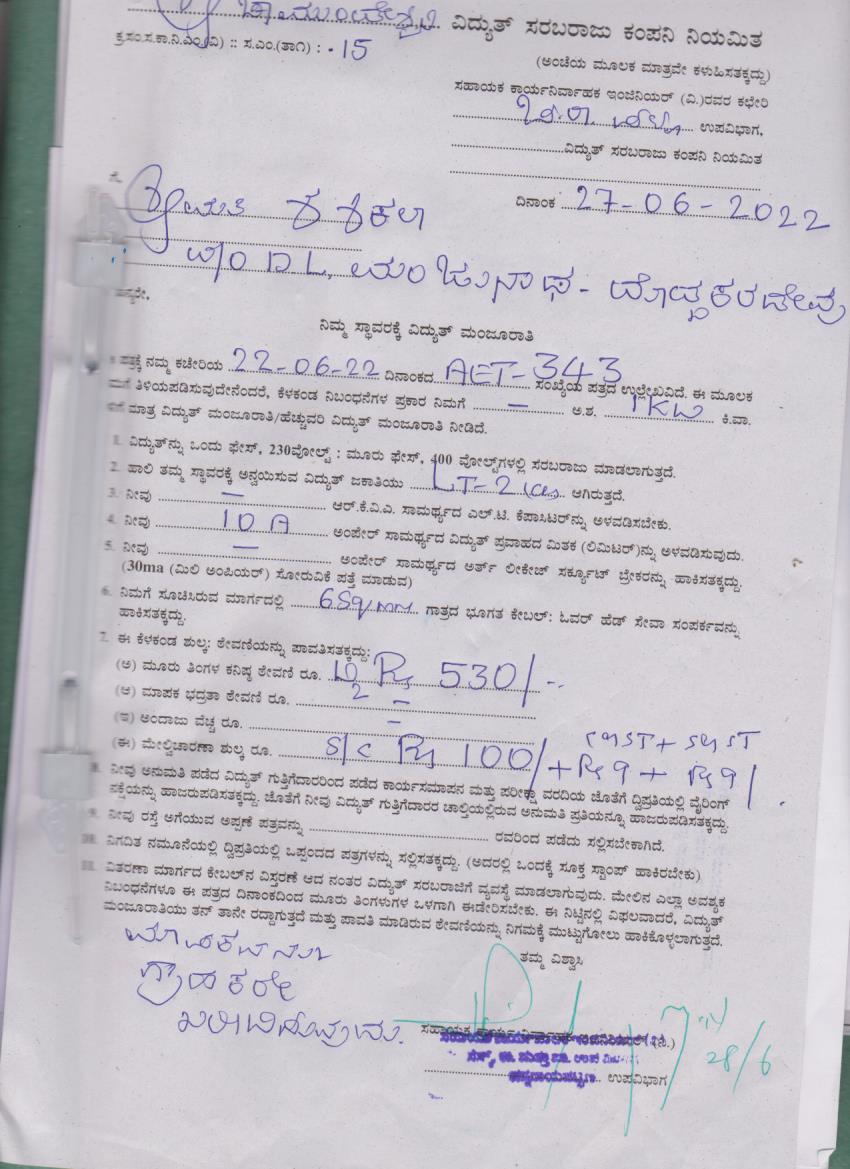 ಚಾಮುಂಡೇಶ್ವರಿ ವಿದ್ಯುತ್ ಸರಬರಾಜು ಕಂಪನಿ ನಿಯಮಿತ
ಕ್ರಸಂ.ಸ.ಕಾ.ನಿ.ಎಂ(ವಿ) :: ಸ.ಎಂ.(ತಾ೧) : -15
(ಅಂಚೆಯ ಮೂಲಕ ಮಾತ್ರವೇ ಕಳುಹಿಸತಕ್ಕದ್ದು)
ಸಹಾಯಕ ಕಾರ್ಯನಿರ್ವಾಹಕ ಇಂಜಿನಿಯರ್ (ವಿ.)ರವರ ಕಛೇರಿ
ಉಪವಿಭಾಗ,
ವಿದ್ಯುತ್ ಸರಬರಾಜು ಕಂಪನಿ ನಿಯಮಿತ
ದಿನಾಂಕ 27-06-2022
ಶ್ರೀಮತಿ ಶಶಿಕಲಾ
W/O D L, ಮಂಜುನಾಥ -
ನಿಮ್ಮ ಸ್ಥಾವರಕ್ಕೆ ವಿದ್ಯುತ್ ಮಂಜೂರಾತಿ
ಪತ್ರಕ್ಕೆ ನಮ್ಮ ಕಚೇರಿಯ 22-06-22 ದಿನಾಂಕದ AET-343 ಸಂಖ್ಯೆಯ ಪತ್ರದ ಉಲ್ಲೇಖವಿದೆ. ಈ ಮೂಲಕ
ನಿಮಗೆ ತಿಳಿಯಪಡಿಸುವುದೇನೆಂದರೆ, ಕೆಳಕಂಡ ನಿಬಂಧನೆಗಳ ಪ್ರಕಾರ ನಿಮಗೆ — ಅ.ಶ. 1KW ಕಿ.ವಾ.
ಮಾತ್ರ ವಿದ್ಯುತ್ ಮಂಜೂರಾತಿ/ಹೆಚ್ಚುವರಿ ವಿದ್ಯುತ್ ಮಂಜೂರಾತಿ ನೀಡಿದೆ.
1. ವಿದ್ಯುತ್‌ನ್ನು ಒಂದು ಫೇಸ್, 230ವೋಲ್ಟ್ : ಮೂರು ಫೇಸ್, 400 ವೋಲ್ಟ್‌ಗಳಲ್ಲಿ ಸರಬರಾಜು ಮಾಡಲಾಗುತ್ತದೆ.
2. ಹಾಲಿ ತಮ್ಮ ಸ್ಥಾವರಕ್ಕೆ ಅನ್ವಯಿಸುವ ವಿದ್ಯುತ್ ಜಕಾತಿಯು LT-2 ಆಗಿರುತ್ತದೆ.
3. ನೀವು — ಆರ್.ಕೆ.ವಿ.ಎ. ಸಾಮರ್ಥ್ಯದ ಎಲ್.ಟಿ. ಕೆಪಾಸಿಟರ್‌ನ್ನು ಅಳವಡಿಸಬೇಕು.
4. ನೀವು 10 A ಅಂಪೇರ್ ಸಾಮರ್ಥ್ಯದ ವಿದ್ಯುತ್ ಪ್ರವಾಹದ ಮಿತಕ (ಲಿಮಿಟರ್)ನ್ನು ಅಳವಡಿಸುವುದು.
5. ನೀವು — ಅಂಪೇರ್ ಸಾಮರ್ಥ್ಯದ ಅರ್ತ್ ಲೀಕೇಜ್ ಸರ್ಕ್ಯೂಟ್ ಬ್ರೇಕರನ್ನು ಹಾಕಿಸತಕ್ಕದ್ದು.
(30ma (ಮಿಲಿ ಅಂಪಿಯರ್) ಸೋರುವಿಕೆ ಪತ್ತೆ ಮಾಡುವ)
6. ನಿಮಗೆ ಸೂಚಿಸಿರುವ ಮಾರ್ಗದಲ್ಲಿ 6Sq/mm ಗಾತ್ರದ ಭೂಗತ ಕೇಬಲ್: ಓವರ್ ಹೆಡ್ ಸೇವಾ ಸಂಪರ್ಕವನ್ನು
ಹಾಕಿಸತಕ್ಕದ್ದು.
7. ಈ ಕೆಳಕಂಡ ಶುಲ್ಕ: ಠೇವಣಿಯನ್ನು ಪಾವತಿಸತಕ್ಕದ್ದು:
(ಅ) ಮೂರು ತಿಂಗಳ ಕನಿಷ್ಠ ಠೇವಣಿ ರೂ. Rs 530/-
(ಆ) ಮಾಪಕ ಭದ್ರತಾ ಠೇವಣಿ ರೂ. —
(ಇ) ಅಂದಾಜು ವೆಚ್ಚ ರೂ. —
CGST + SGST
(ಈ) ಮೇಲ್ವಿಚಾರಣಾ ಶುಲ್ಕ ರೂ. S/C Rs 100/ + Rs 9 + Rs 9/
8. ನೀವು ಅನುಮತಿ ಪಡೆದ ವಿದ್ಯುತ್ ಗುತ್ತಿಗೆದಾರರಿಂದ ಪಡೆದ ಕಾರ್ಯಸಮಾಪನ ಮತ್ತು ಪರೀಕ್ಷಾ ವರದಿಯ ಜೊತೆಗೆ ದ್ವಿಪ್ರತಿಯಲ್ಲಿ ವೈರಿಂಗ್
ನಕ್ಷೆಯನ್ನು ಹಾಜರುಪಡಿಸತಕ್ಕದ್ದು. ಜೊತೆಗೆ ನೀವು ವಿದ್ಯುತ್ ಗುತ್ತಿಗೆದಾರರ ಚಾಲ್ತಿಯಲ್ಲಿರುವ ಅನುಮತಿ ಪ್ರತಿಯನ್ನೂ ಹಾಜರುಪಡಿಸತಕ್ಕದ್ದು.
9. ನೀವು ರಸ್ತೆ ಅಗೆಯುವ ಅಪ್ಪಣೆ ಪತ್ರವನ್ನು ರವರಿಂದ ಪಡೆದು ಸಲ್ಲಿಸಬೇಕಾಗಿದೆ.
10. ನಿಗದಿತ ನಮೂನೆಯಲ್ಲಿ ದ್ವಿಪ್ರತಿಯಲ್ಲಿ ಒಪ್ಪಂದದ ಪತ್ರಗಳನ್ನು ಸಲ್ಲಿಸತಕ್ಕದ್ದು. (ಅದರಲ್ಲಿ ಒಂದಕ್ಕೆ ಸೂಕ್ತ ಸ್ಟಾಂಪ್ ಹಾಕಿರಬೇಕು)
11. ವಿತರಣಾ ಮಾರ್ಗದ ಕೇಬಲ್‌ನ ವಿಸ್ತರಣೆ ಆದ ನಂತರ ವಿದ್ಯುತ್ ಸರಬರಾಜಿಗೆ ವ್ಯವಸ್ಥೆ ಮಾಡಲಾಗುವುದು. ಮೇಲಿನ ಎಲ್ಲಾ ಅವಶ್ಯಕ
ನಿಬಂಧನೆಗಳೂ ಈ ಪತ್ರದ ದಿನಾಂಕದಿಂದ ಮೂರು ತಿಂಗಳುಗಳ ಒಳಗಾಗಿ ಈಡೇರಿಸಬೇಕು. ಈ ನಿಟ್ಟಿನಲ್ಲಿ ವಿಫಲವಾದರೆ, ವಿದ್ಯುತ್
ಮಂಜೂರಾತಿಯು ತನ್ ತಾನೇ ರದ್ದಾಗುತ್ತದೆ ಮತ್ತು ಪಾವತಿ ಮಾಡಿರುವ ಠೇವಣಿಯನ್ನು ನಿಗಮಕ್ಕೆ ಮುಟ್ಟುಗೋಲು ಹಾಕಿಕೊಳ್ಳಲಾಗುತ್ತದೆ.
ತಮ್ಮ ವಿಶ್ವಾಸಿ
ಮಾಪಕವನ್ನು
ಗ್ರಾಹಕರೇ
ಖರೀದಿಸುವುದು.
ಸಹಾಯಕ ಕಾರ್ಯನಿರ್ವಾಹಕ ಇಂಜಿನಿಯರ್ (ವಿ.)
28/6
ಉಪವಿಭಾಗ